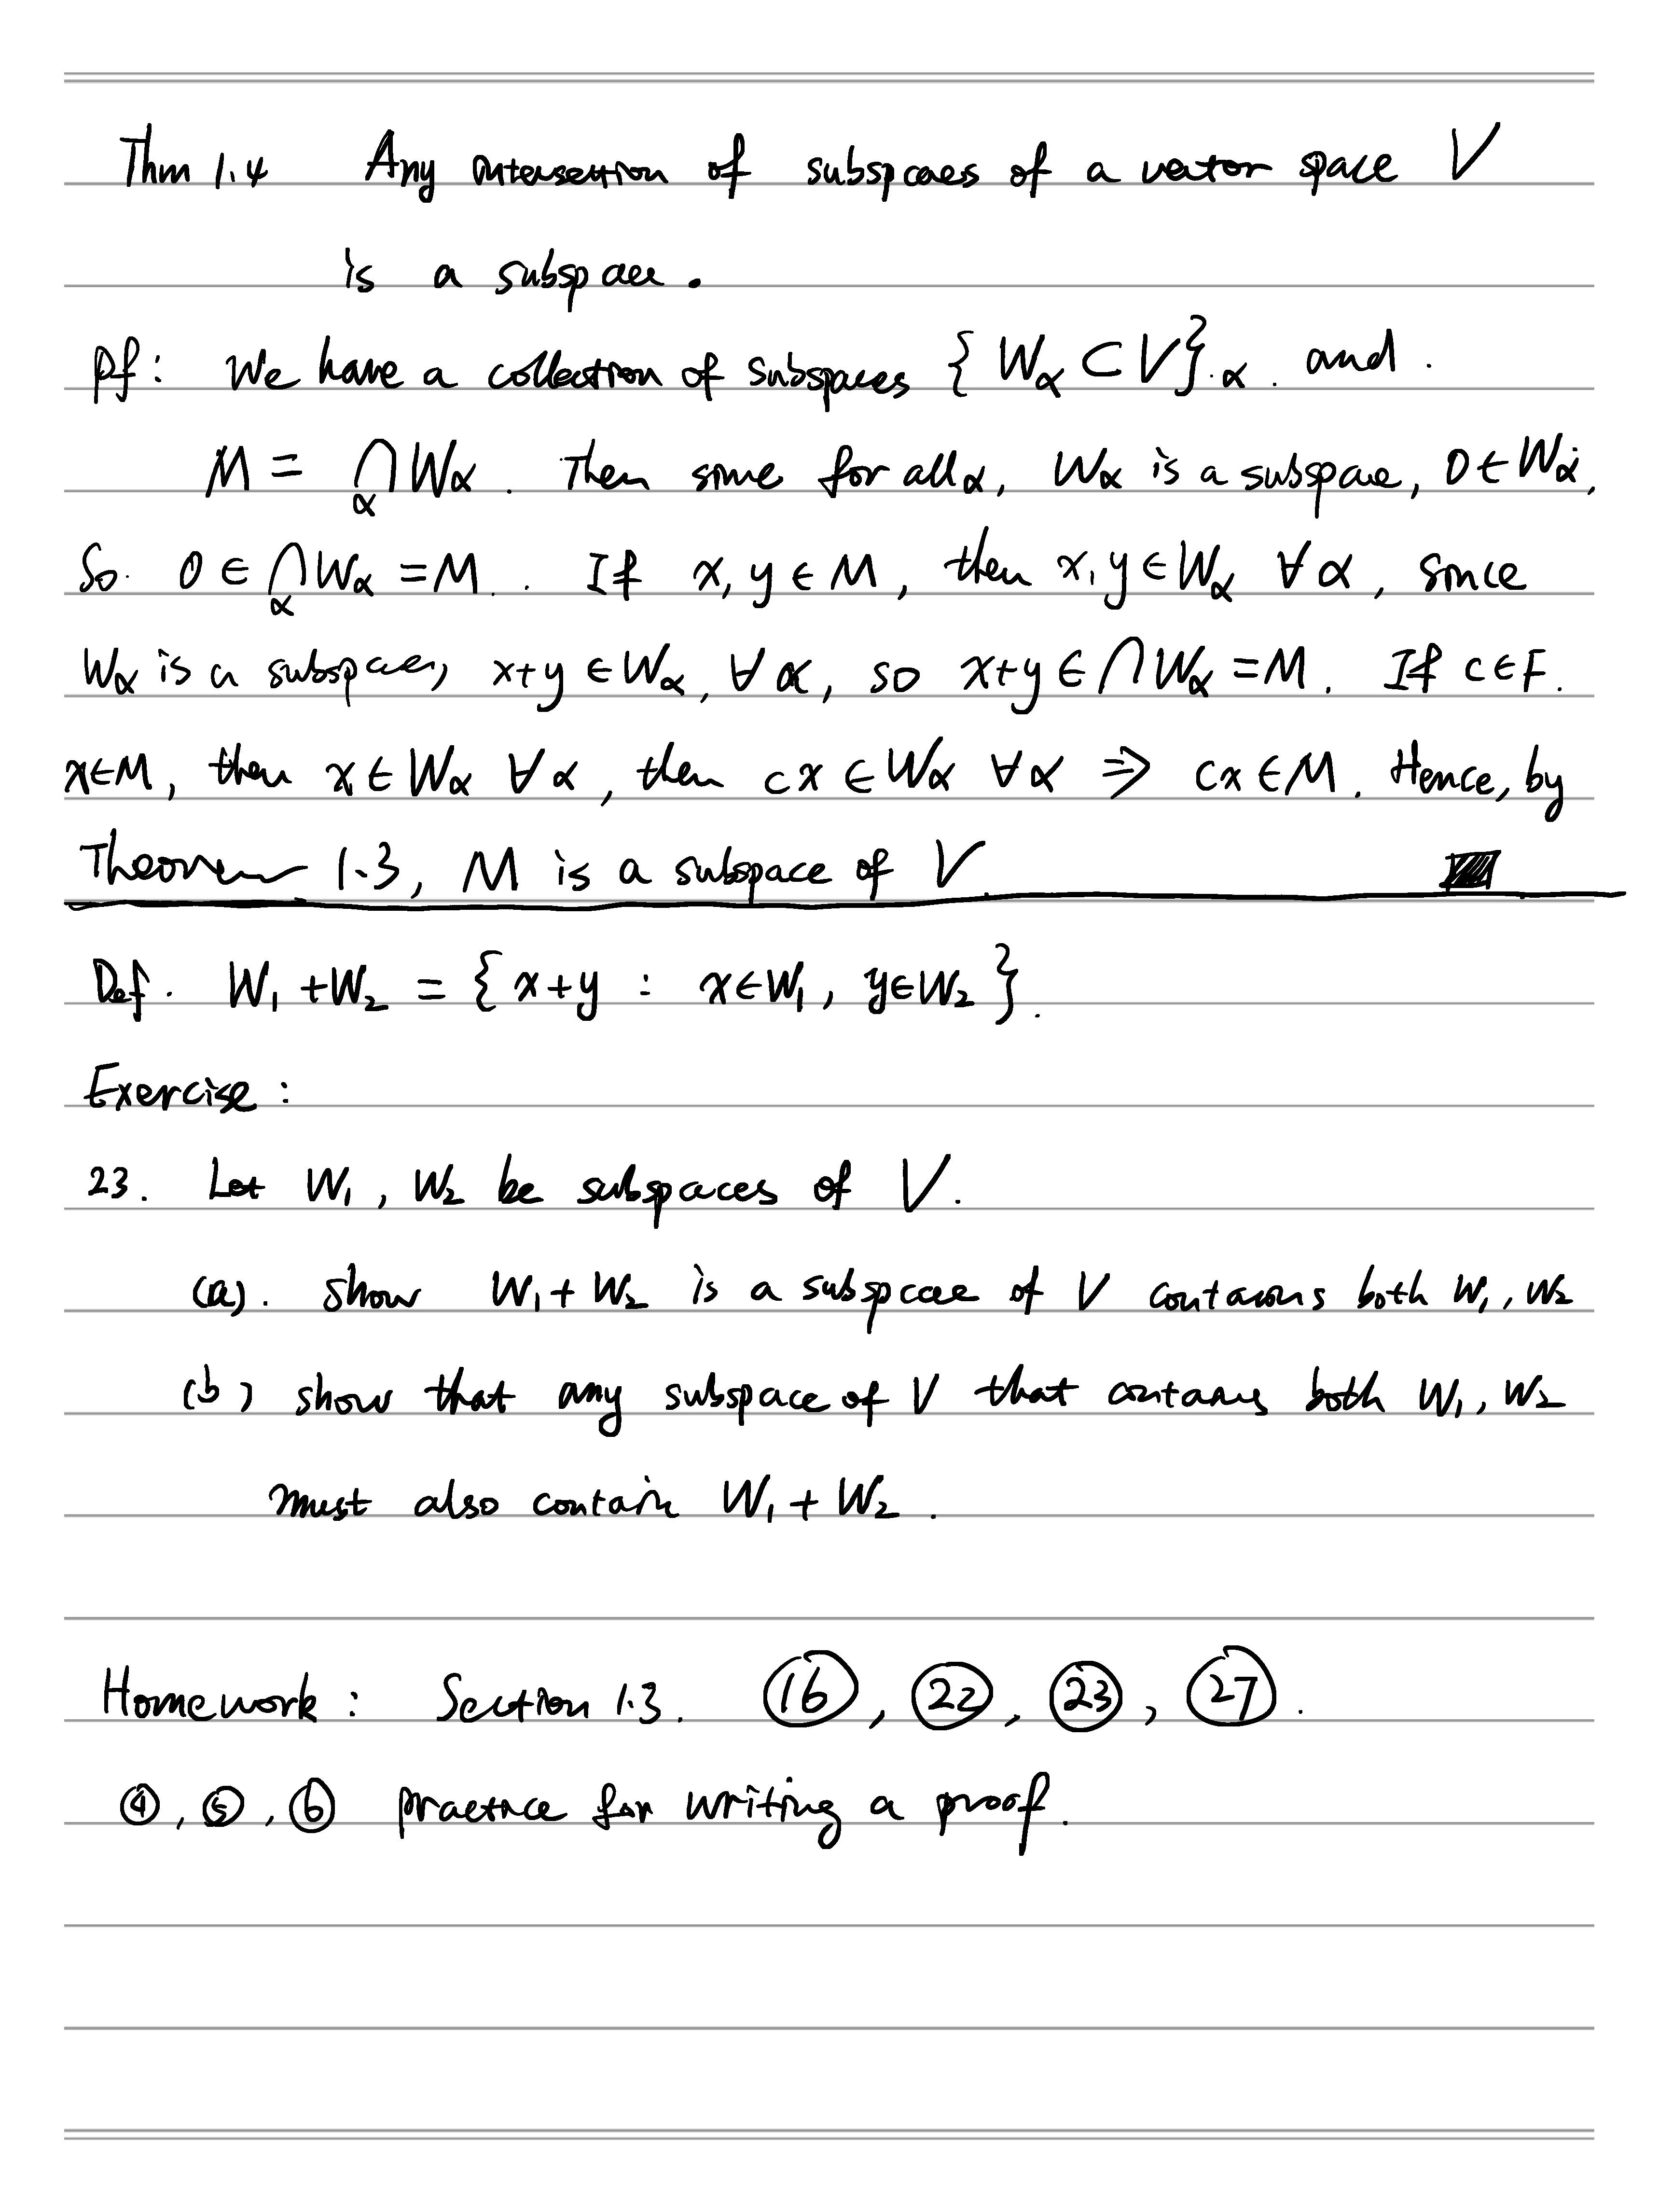 Thm 1.4 Any intersection of subspaces of a vector space V
is a subspace.
Pf: We have a collection of subspaces {W_α ⊂ V}_α. and.
M = ⋂_α W_α. Then since for all α, W_α is a subspace, 0 ∈ W_α.
So 0 ∈ ⋂_α W_α = M. If x, y ∈ M, then x, y ∈ W_α ∀ α, since
W_α is a subspace, x+y ∈ W_α, ∀ α, so x+y ∈ ⋂ W_α = M. If c ∈ F.
x ∈ M, then x ∈ W_α ∀ α, then cx ∈ W_α ∀ α ⇒ cx ∈ M. Hence, by
Theorem 1.3, M is a subspace of V. ■
Def. W₁ + W₂ = { x+y : x ∈ W₁, y ∈ W₂ }.
Exercise:
23. Let W₁, W₂ be subspaces of V.
(a). show W₁ + W₂ is a subspace of V contains both W₁, W₂
(b) show that any subspace of V that contains both W₁, W₂
must also contain W₁ + W₂.
Homework: Section 1.3. ⑯, ㉒, ㉓, ㉗.
④, ⑤, ⑥ practice for writing a proof.